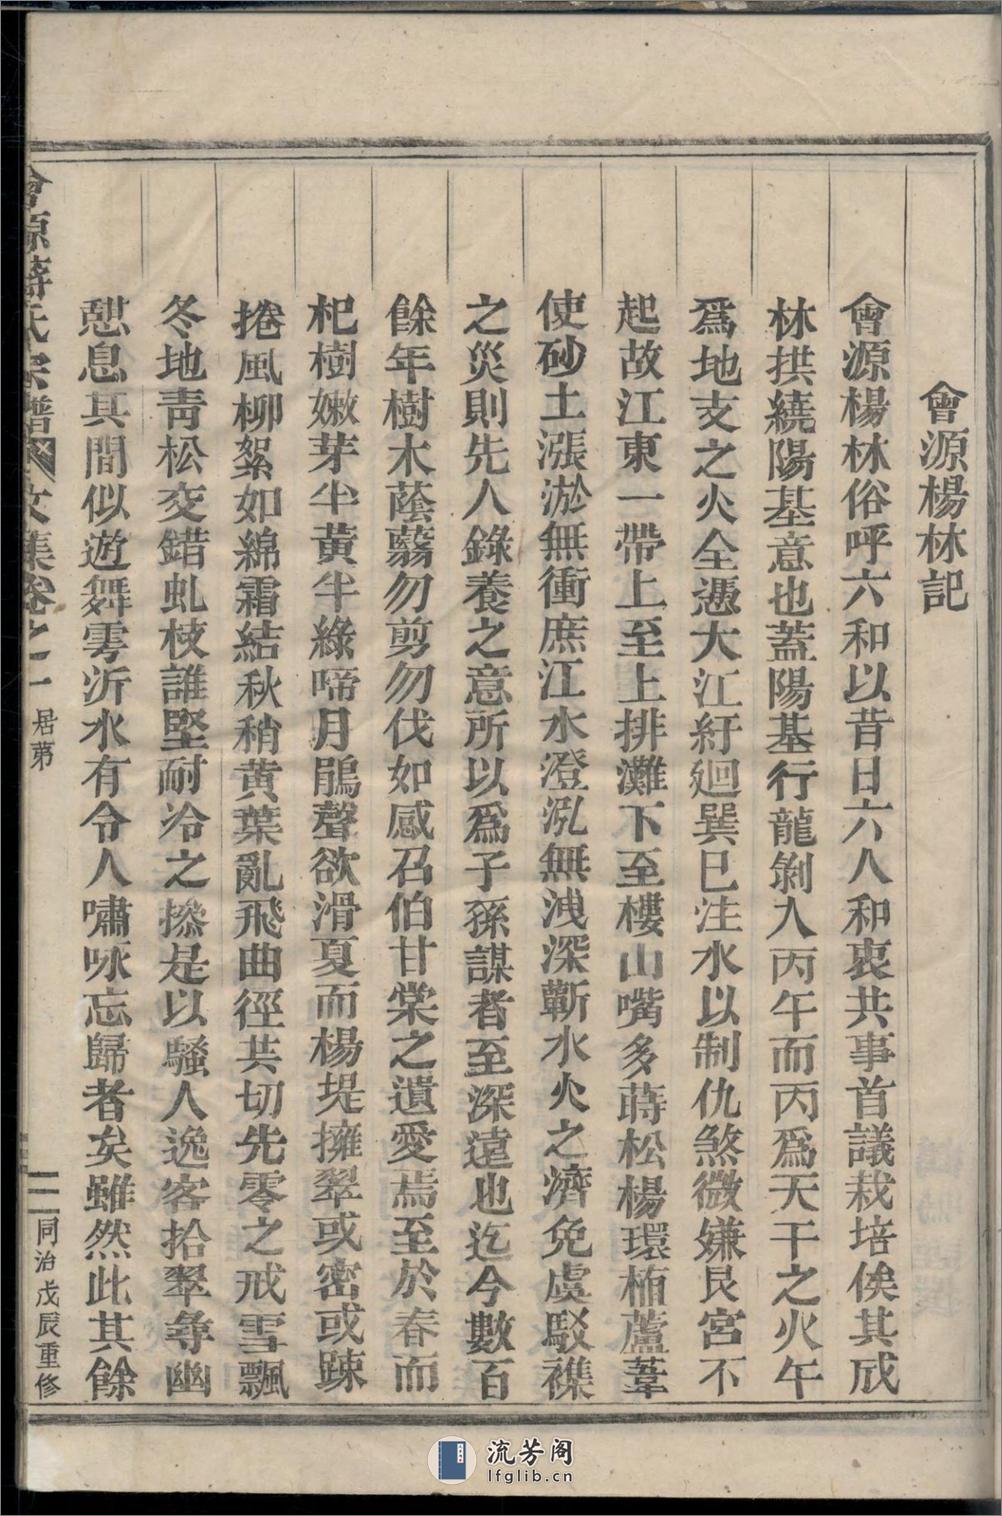 會源楊林記
會源楊林俗呼六和以昔日六人和衷共事首議栽培俟其成
林拱繞陽基意也蓋陽基行龍剝入丙午而丙爲天干之火午
爲地支之火全憑大江紆廻巽巳注水以制仇煞微嫌艮宮不
起故江東一帶上至上排灘下至樓山嘴多蒔松楊環栢蘆葦
使砂土漲淤無衝庶江水澄泓無洩深蘄水火之濟免虞駁襍
之災則先人錄養之意所以爲子孫謀者至深遠也迄今數百
餘年樹木蔭翳勿剪勿伐如感召伯甘棠之遺愛焉至於春而
杞樹嫩芽半黃半綠啼月鵑聲欲滑夏而楊堤擁翠或密或踈
捲風柳絮如綿霜結秋稍黄葉亂飛曲徑共切先零之戒雪飄
冬地靑松交錯虬枝誰堅耐冷之摻是以騷人逸客拾翠尋幽
憇息其間似遊舞雩沂水有令人嘯咏忘歸者矣雖然此其餘
會源蔣氏宗譜 文集卷之一 居第 二 同治戊辰重修
流芳阁
lfglib.cn